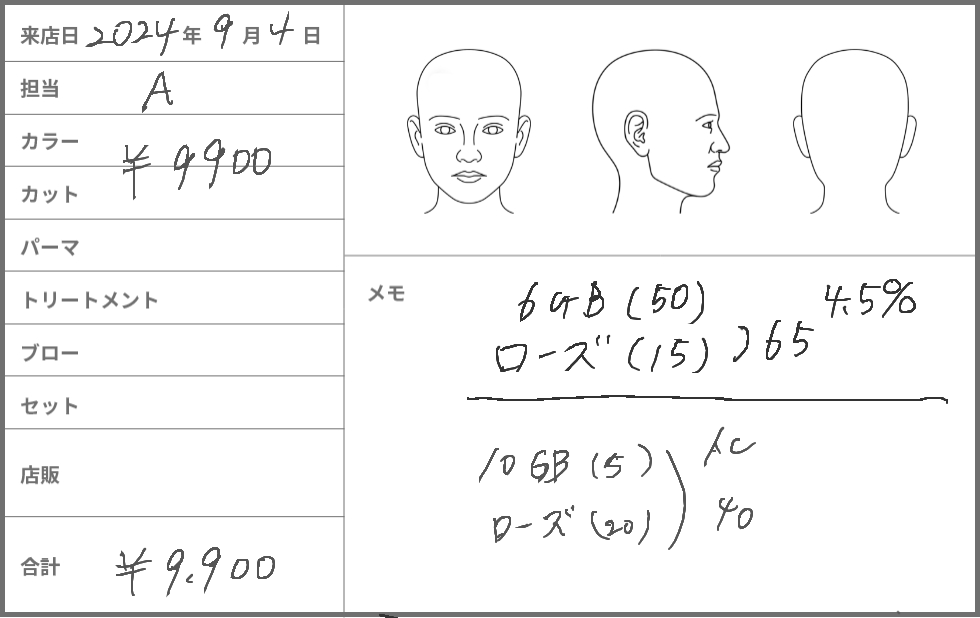 来店日 2024年 9月 4日
担当 A
カラー
¥9900
カット
パーマ
トリートメント
ブロー
セット
店販
合計 ¥9,900
メモ
6GB (50) 4.5%
ローズ (15) ) 65
10GB (5)
ローズ (20) ) 40